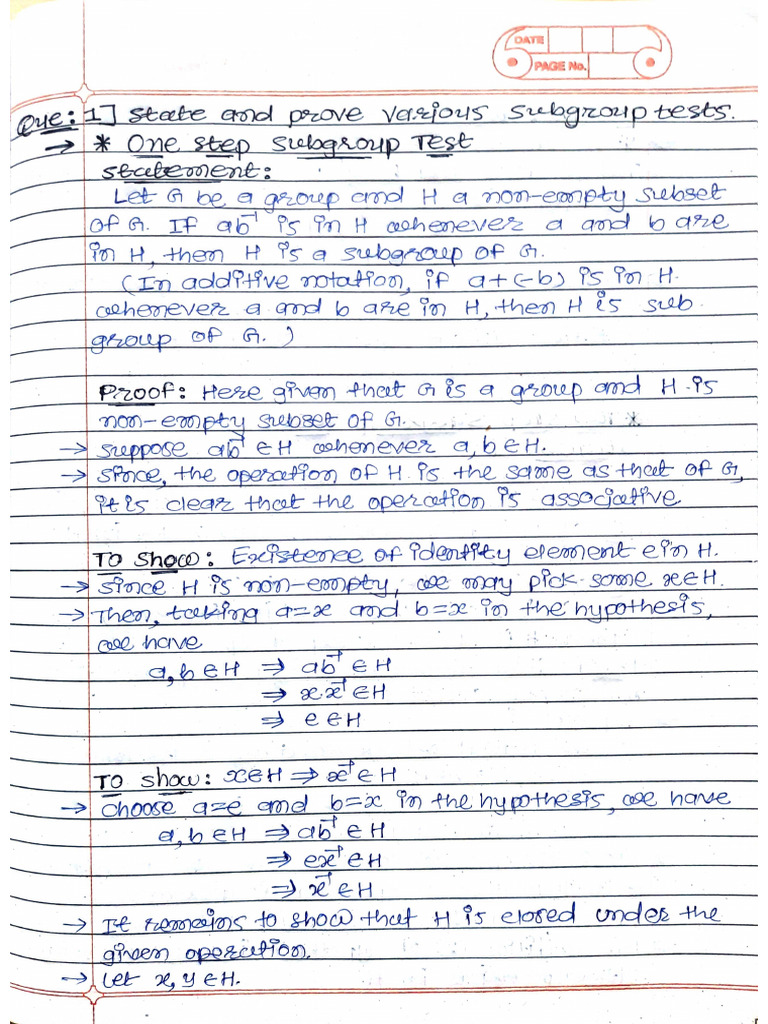 DATE
PAGE No.
Que: 1] State and prove various subgroup tests.
→ * One step subgroup Test
Statement:
Let G be a group and H a non-empty subset
of G. If ab⁻¹ is in H whenever a and b are
in H, then H is a subgroup of G.
(In additive notation, if a+(-b) is in H
whenever a and b are in H, then H is sub
group of G.)
Proof: Here given that G is a group and H is
non-empty subset of G.
→ suppose ab⁻¹ ∈ H whenever a, b ∈ H.
→ since, the operation of H is the same as that of G,
it is clear that the operation is associative
To show: Existence of identity element e in H.
→ since H is non-empty, we may pick some x∈H.
→ Then, taking a=x and b=x in the hypothesis,
we have
a, b ∈ H ⇒ ab⁻¹ ∈ H
⇒ x.x⁻¹ ∈ H
⇒ e ∈ H
To show: x∈H ⇒ x⁻¹ ∈ H
→ choose a=e and b=x in the hypothesis, we have
a, b ∈ H ⇒ ab⁻¹ ∈ H
⇒ ex⁻¹ ∈ H
⇒ x⁻¹ ∈ H
→ It remains to show that H is closed under the
given operation.
→ Let x, y ∈ H.